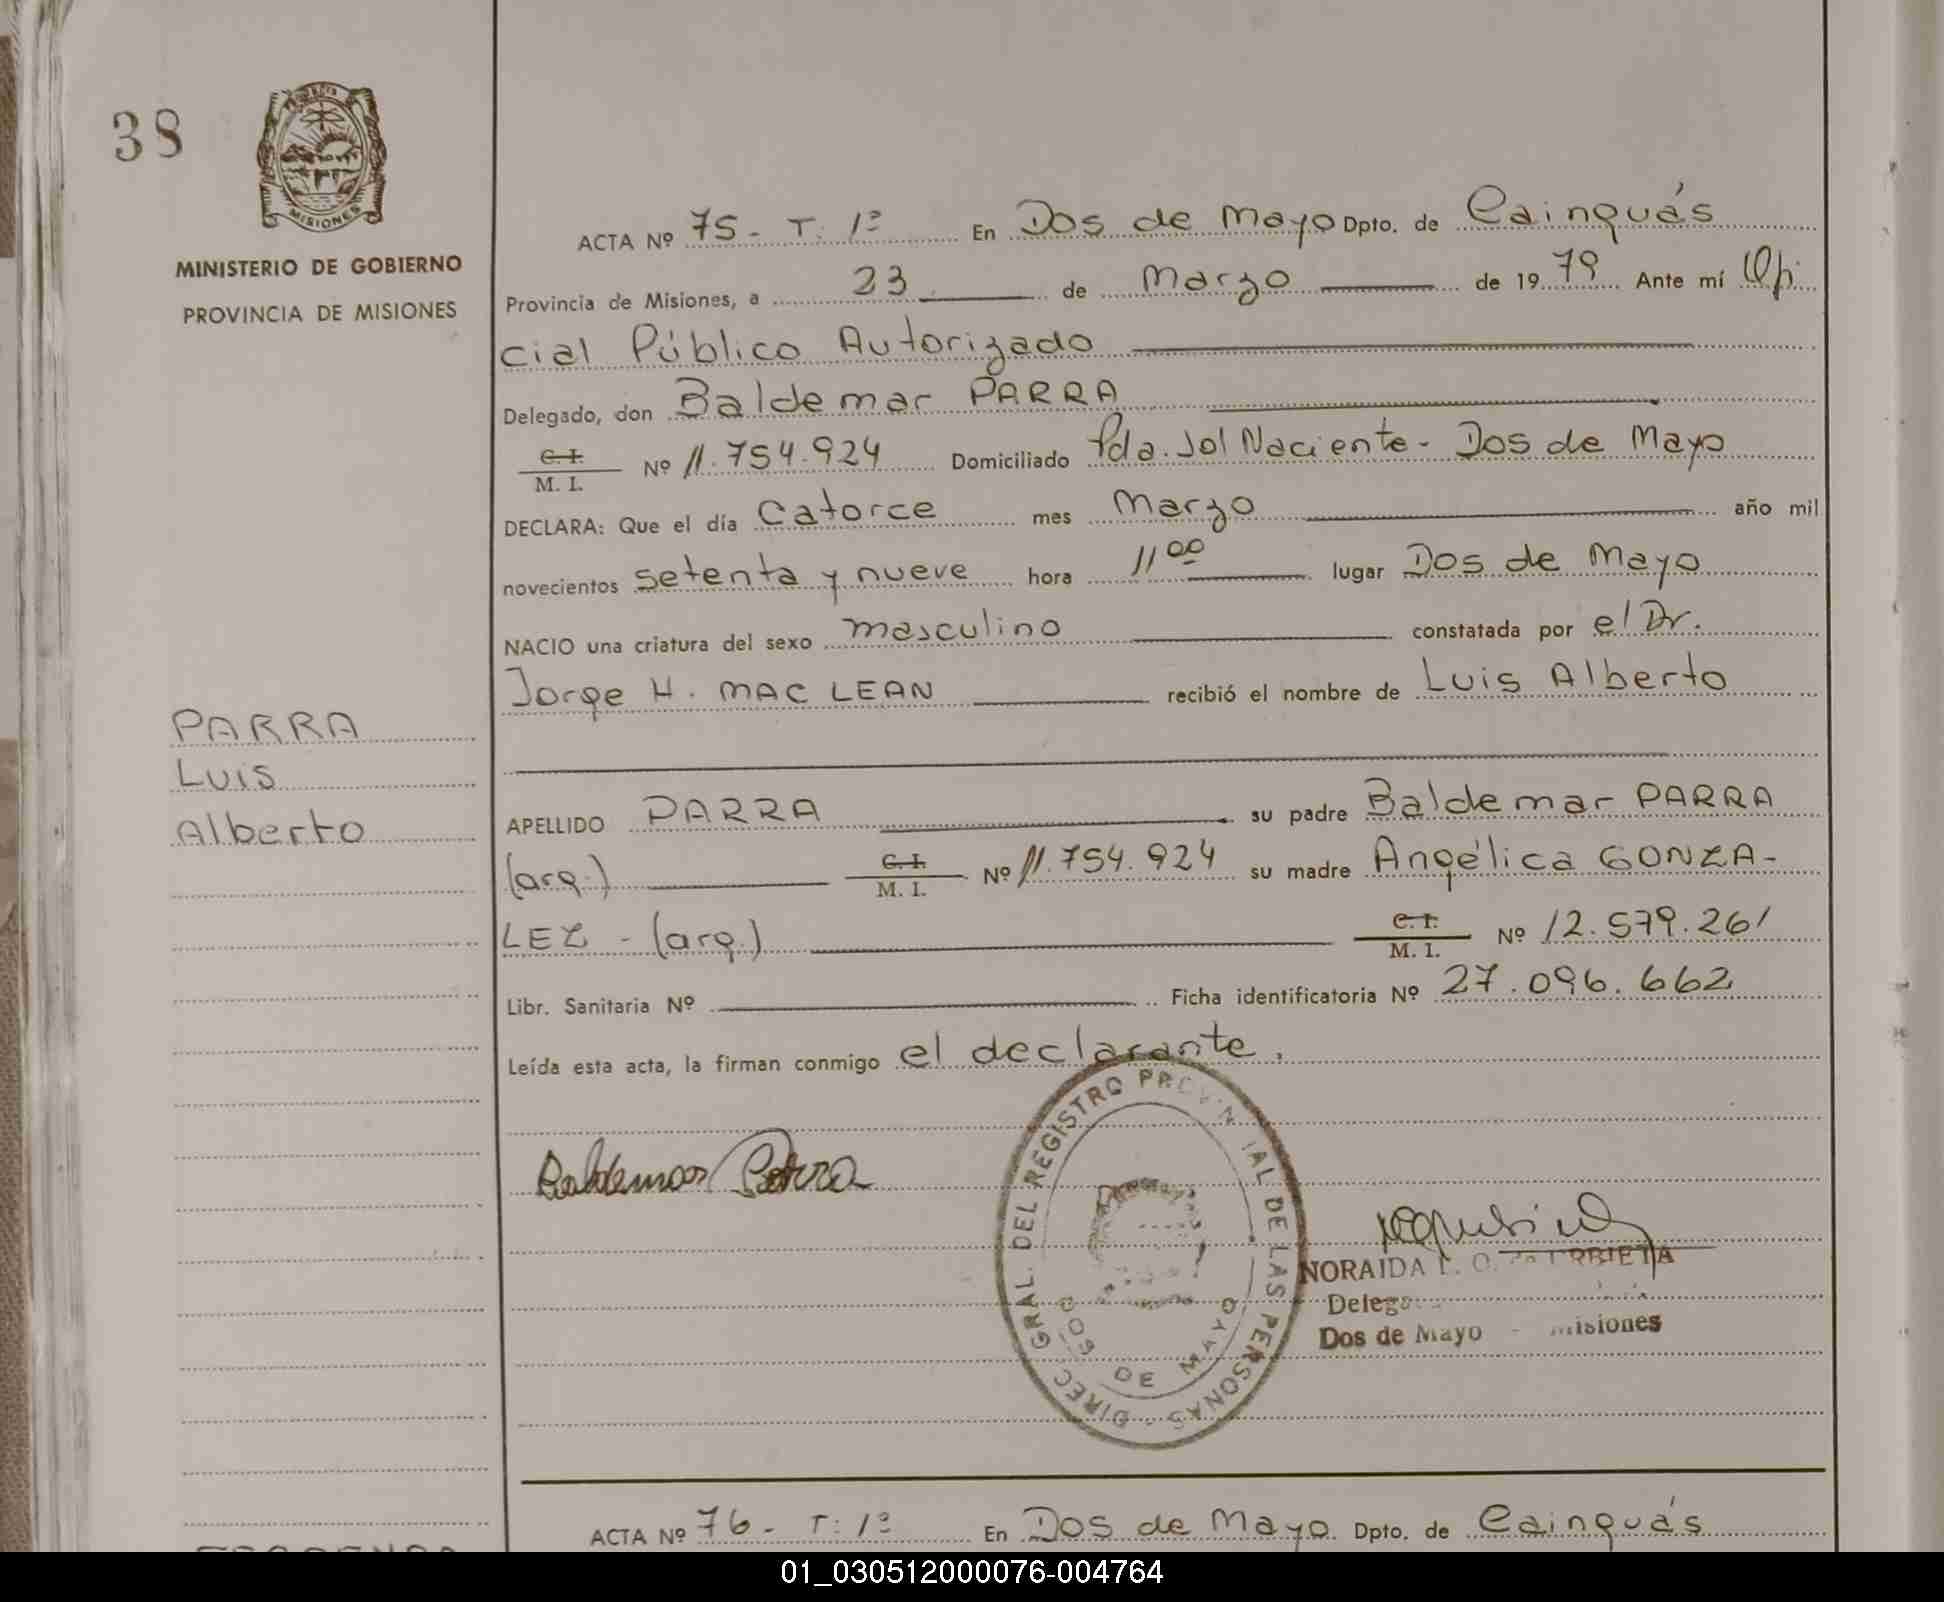 38
MISIONES
MINISTERIO DE GOBIERNO
PROVINCIA DE MISIONES
ACTA Nº 75 - T: 1º En Dos de Mayo Dpto. de Cainguás
Provincia de Misiones, a 23 de Marzo de 1979 Ante mí Ofi
cial Público Autorizado
Delegado, don Baldemar PARRA
C. I.
M. I. Nº 11.754.924 Domiciliado Pda. Sol Naciente - Dos de Mayo
DECLARA: Que el día Catorce mes Marzo año mil
novecientos setenta y nueve hora 11 00 lugar Dos de Mayo
NACIO una criatura del sexo masculino constatada por el Dr.
Jorge H. MAC LEAN recibió el nombre de Luis Alberto
PARRA
Luis
Alberto
APELLIDO PARRA su padre Baldemar PARRA
(arg.) C. I.
M. I. Nº 11.754.924 su madre Angélica GONZA-
LEZ - (arg.) C. I.
M. I. Nº 12.579.261
Libr. Sanitaria Nº Ficha identificatoria Nº 27.096.662
Leída esta acta, la firman conmigo el declarante.
Baldemar Parra
DIREC GRAL. DEL REGISTRO PROVINCIAL DE LAS PERSONAS
DOS DE MAYO
NORAIDA
Dos de Mayo - Misiones
ACTA Nº 76 - T: 1º En Dos de Mayo Dpto. de Cainguás
01_030512000076-004764